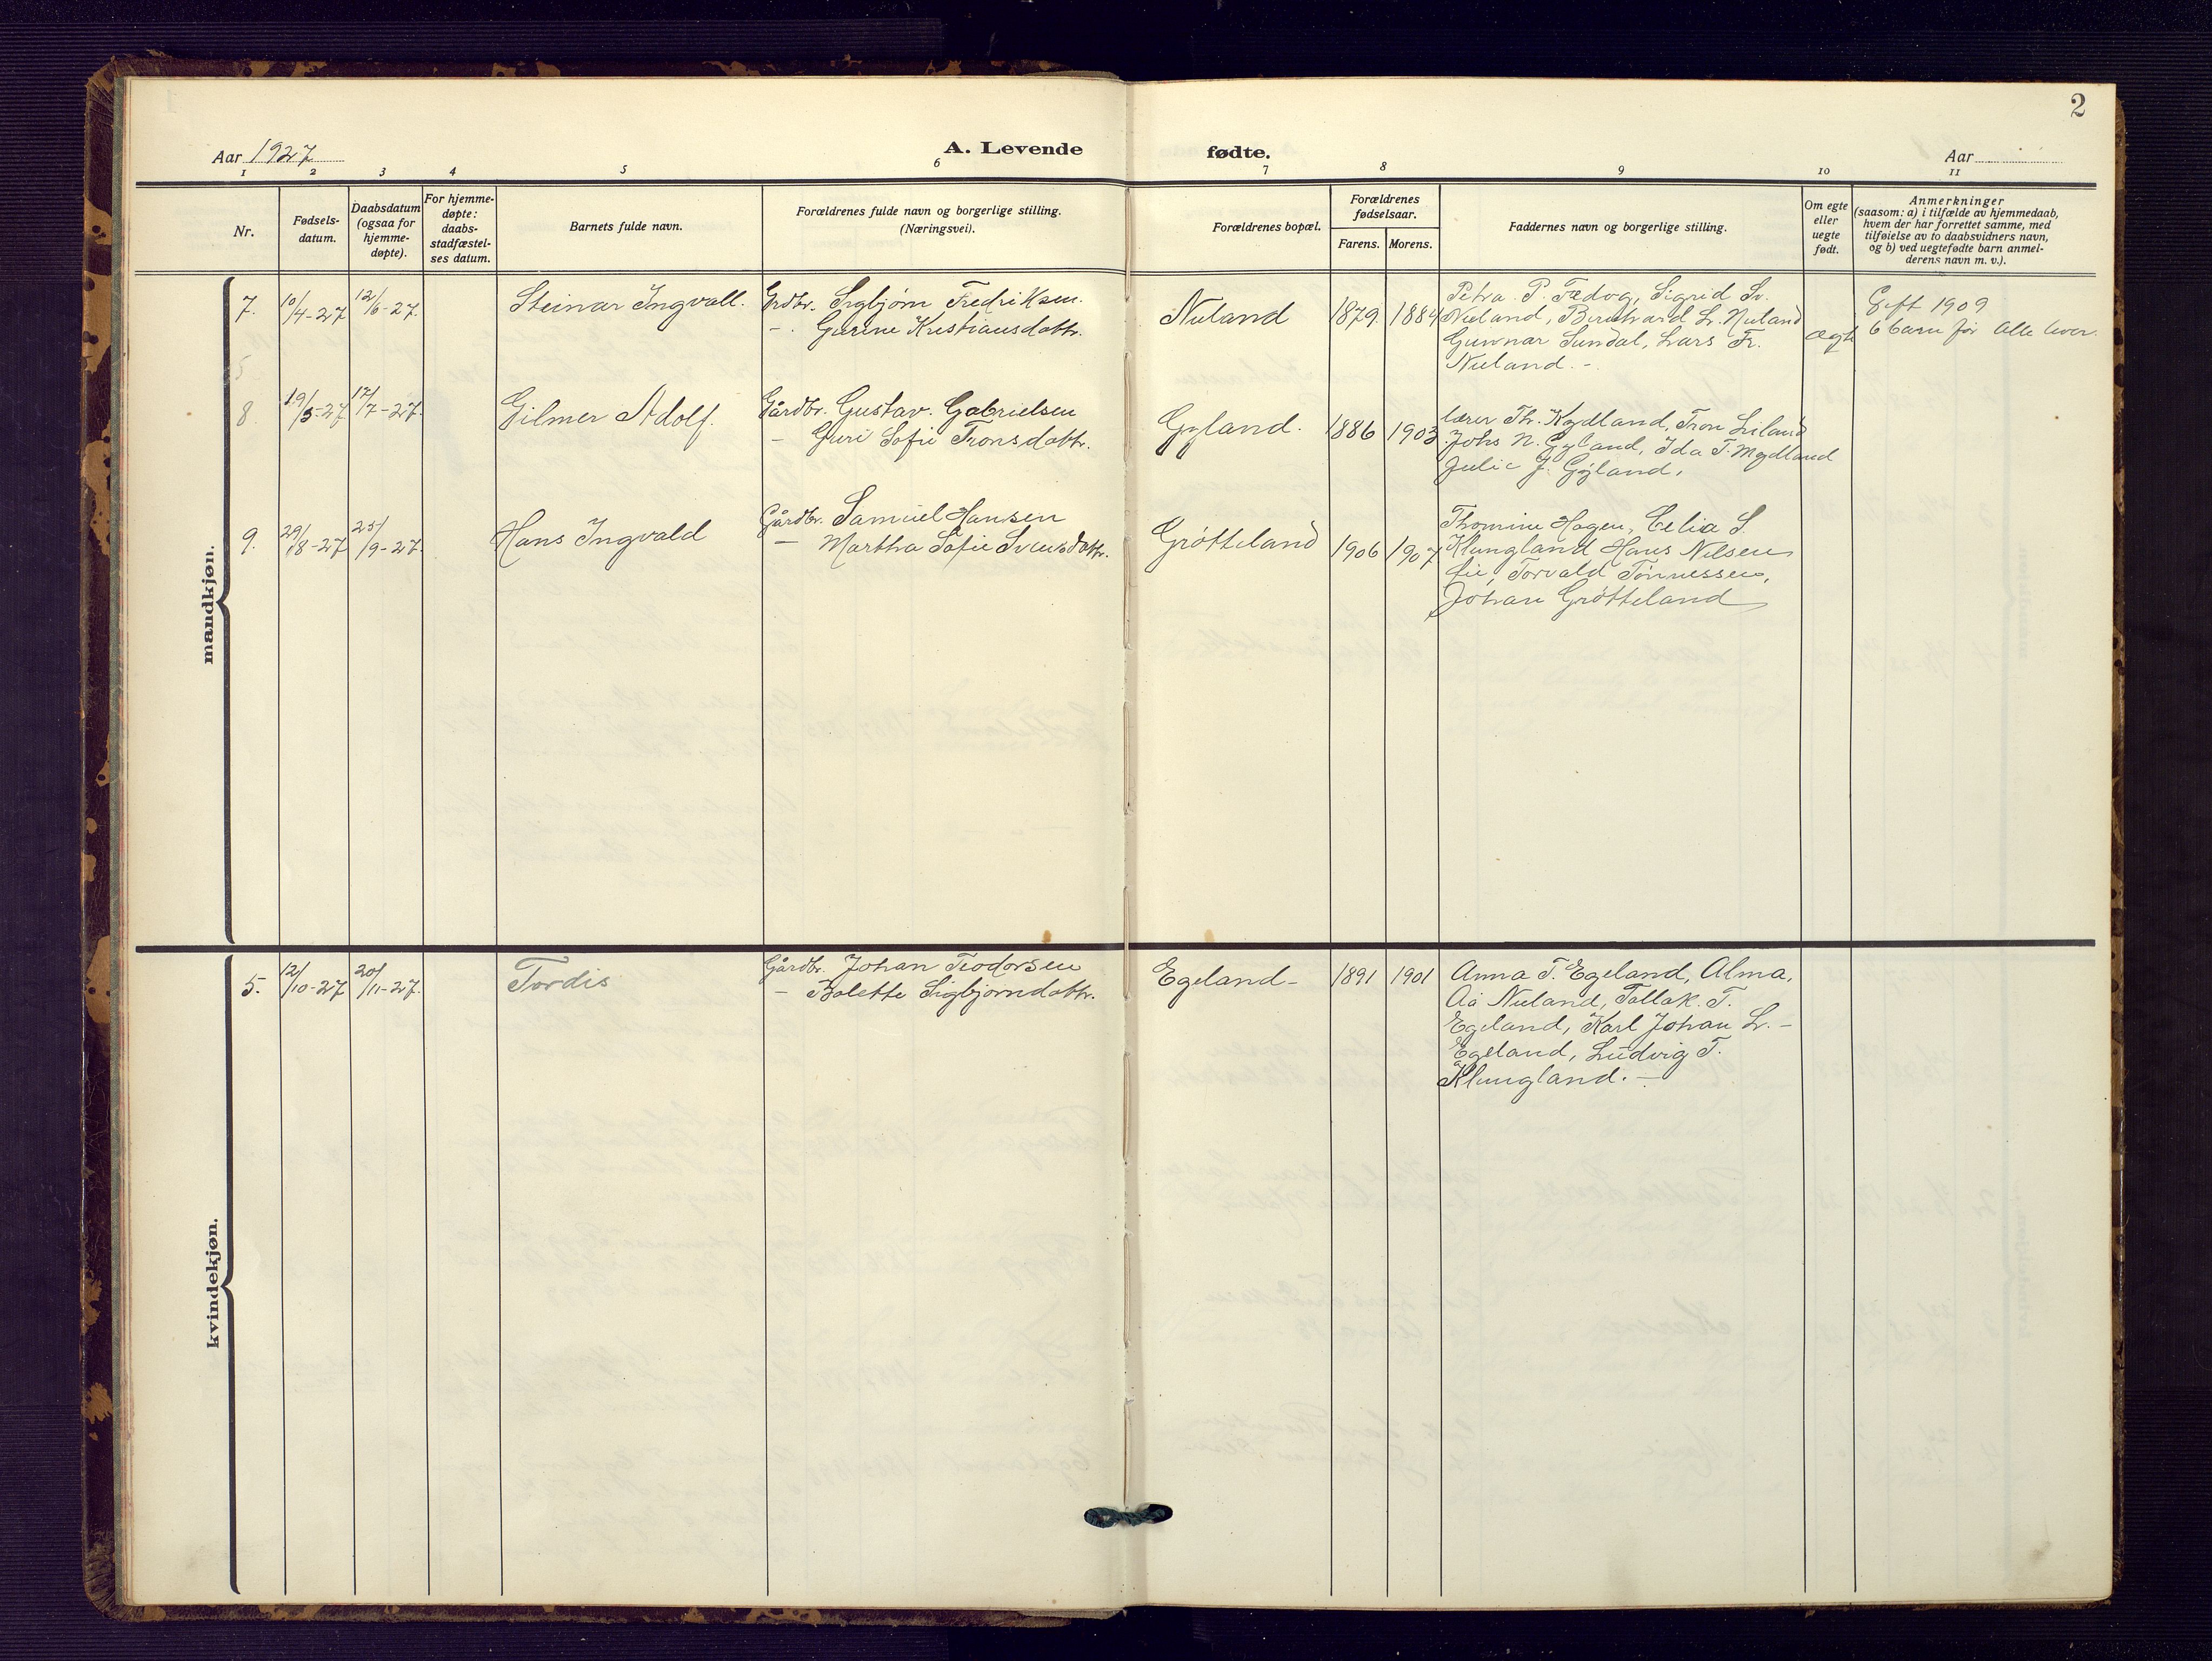 2
Aar 1927
A. Levende fødte.
Aar
1 2 3 4 5 6 7 8 9 10 11
Nr.
Fødsels-
datum.
Daabsdatum
(ogsaa for
hjemme-
døpte).
For hjemme-
døpte:
daabs-
stadfæstel-
ses datum.
Barnets fulde navn.
Forældrenes fulde navn og borgerlige stilling.
(Næringsvei).
Forældrenes bopæl.
Forældrenes
fødselsaar.
Farens. Morens.
Faddernes navn og borgerlige stilling.
Om egte
eller
uegte
født.
Anmerkninger
(saasom: a) i tilfælde av hjemmedaab,
hvem der har forrettet samme, med
tilføielse av to daabsvidners navn,
og b) ved uegtefødte barn anmel-
derens navn m. v.).
mandkjøn.
7. 10/4-27 12/6-27. Steinar Ingvall. Grdbr. Sigbjørn Fredriksen.
-. Gurine Kristiansdattr.
Nuland 1879 1884
Petra P. Fedog, Sigrid Sv.
Nuland, Bernhard L. Nuland
Gunnar Sundal, Lars Fr.
Nuland. -
ægt
Gift 1909
6 barn før alle lever.
8 19/5-27 17/7-27. Gilmer Adolf. Gårdbr. Gustav. Gabrielsen
- Guri Sofie Tronsdattr.
Gyland. 1886 1903
lærer Th. Kydland, Tron Liland
Johs N. Gyland, Ida T. Mydland
Julie J. Gyland.
9. 29/8-27 25/9-27. Hans Ingvald Gårdbr. Samuel Hansen
- Martha Sofie Svensdattr.
Grøtteland 1906 1907
Thomine Hagen, Celia S.
Klungland Hans Nilsen
Lie, Torvald Tønnessen,
Johan Grøtteland
kvindekjøn.
5. 12/10-27 20/11-27. Tordis Gårdbr. Johan Teodorsen
- Bolette Sigbjørndattr.
Egeland- 1891 1901
Anna T. Egeland, Alma,
Aa Nuland, Tallak. T.
Egeland, Karl Johan L. -
Egeland, Ludvig T.
Klungland. -